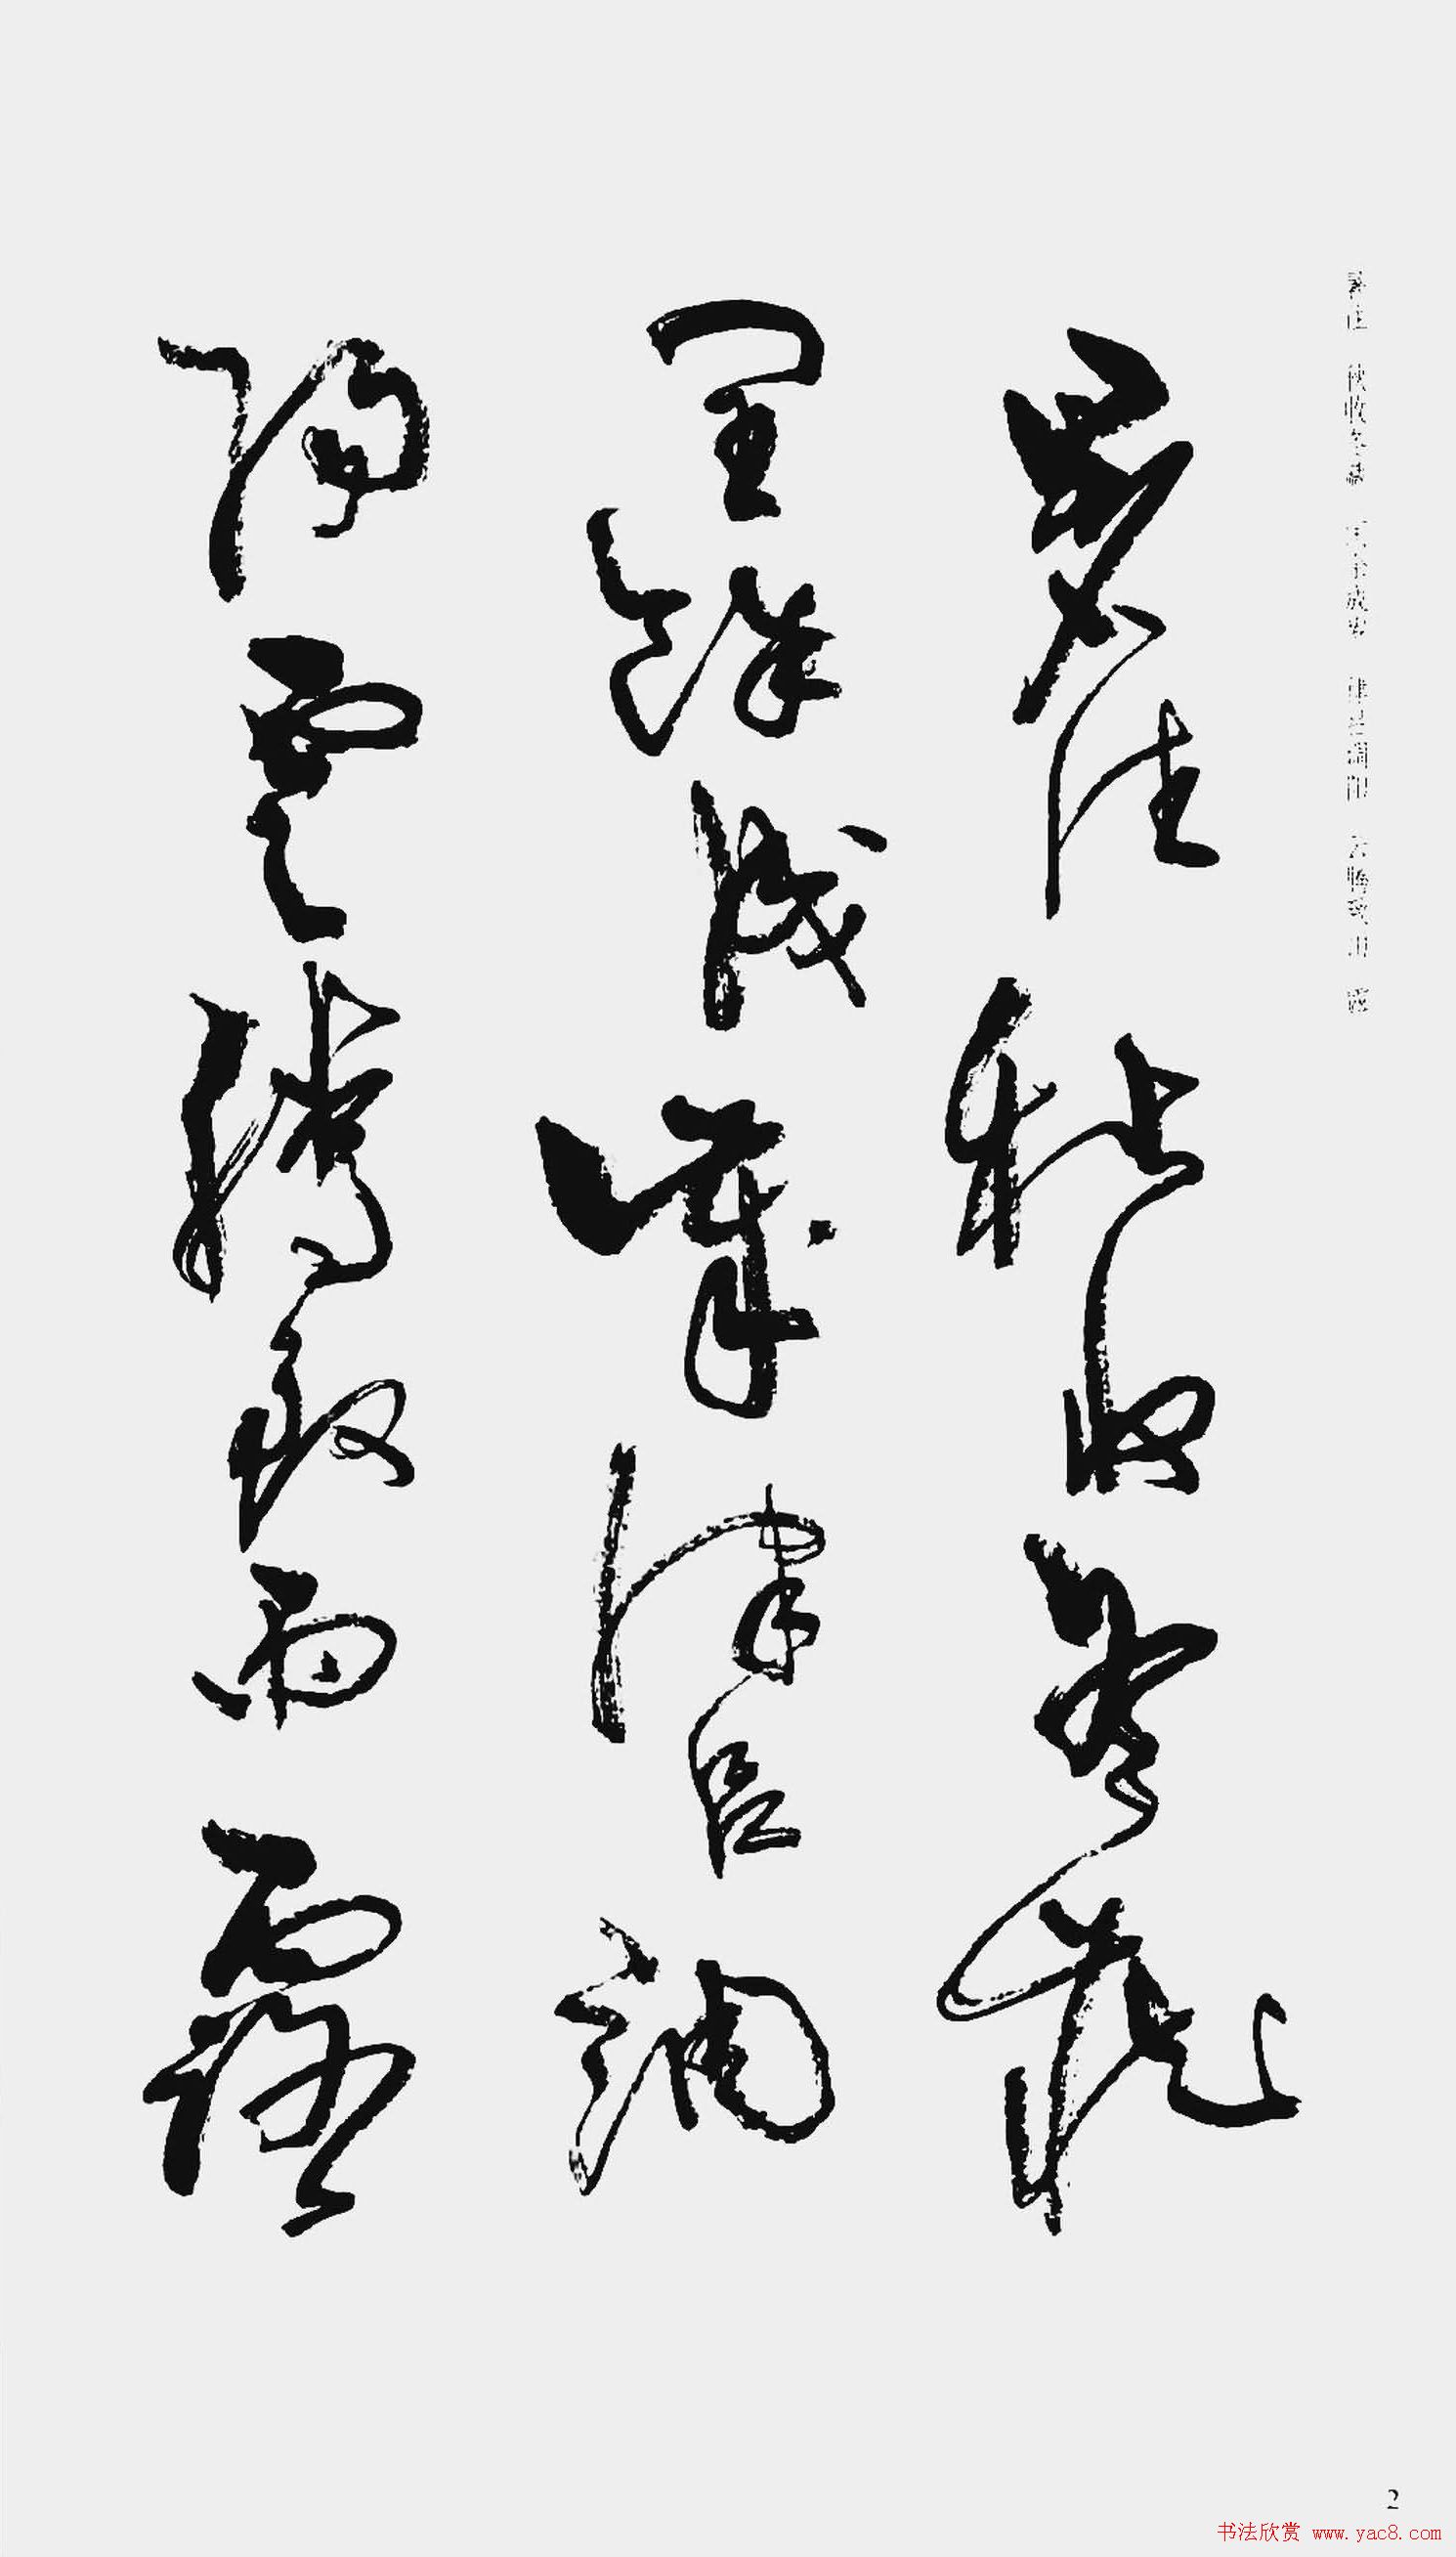 暑往秋收冬藏
閏餘成歲律呂調
陽雲騰致雨露
暑往 秋收冬藏 闰余成岁 律吕调阳 云腾致雨 露
2
书法欣赏 www.yac8.com